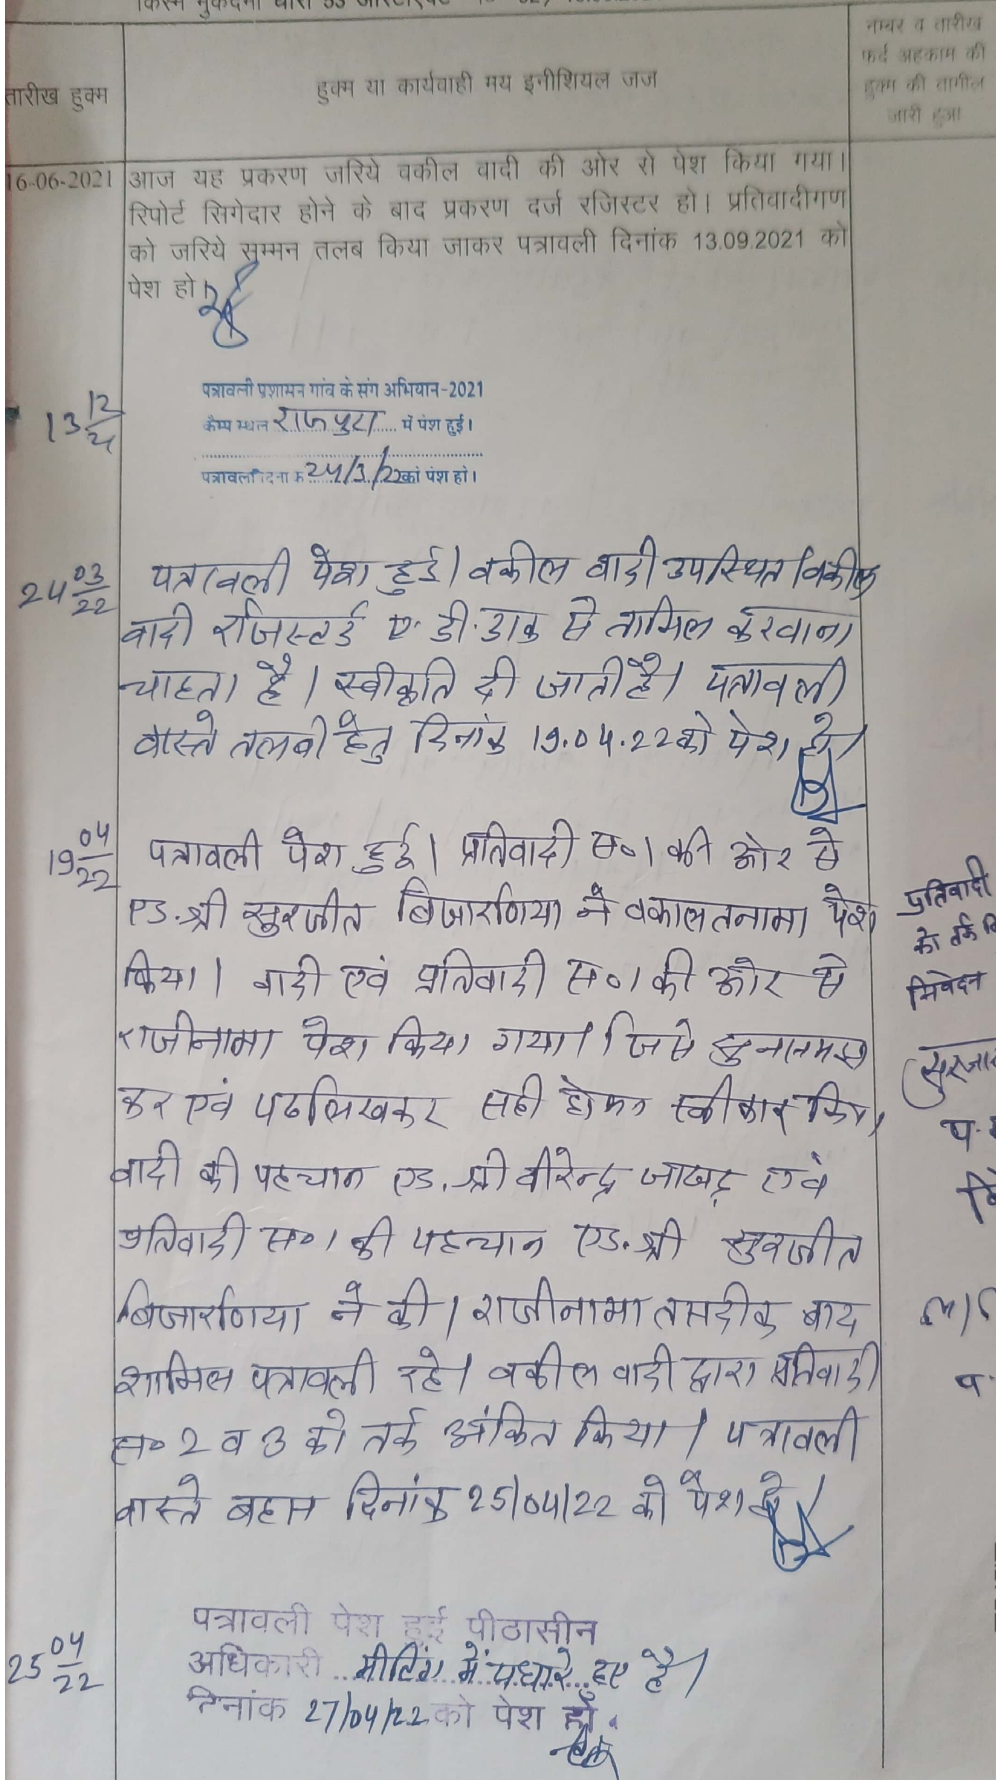 किस्म मुकदमा धारा 53
तारीख हुक्म
हुक्म या कार्यवाही मय इनीशियल जज
नम्बर व तारीख
फर्द अहकाम की
हुक्म की तामील
जारी हुआ
16-06-2021 आज यह प्रकरण जरिये वकील वादी की ओर से पेश किया गया।
रिपोर्ट सिगेदार होने के बाद प्रकरण दर्ज रजिस्टर हो। प्रतिवादीगण
को जरिये सुम्मन तलब किया जाकर पत्रावली दिनांक 13.09.2021 को
पेश हो।
13 12/21
पत्रावली प्रशासन गांव के संग अभियान-2021
कैम्प स्थल राजपुरा में पेश हुई।
पत्रावली दिनांक 24/3/22 को पेश हो।
24 03/22 पत्रावली पेश हुई। वकील वादी उपस्थित। वकील
वादी रजिस्टर्ड ए.डी.डाक से तामिल करवाना
चाहता है। स्वीकृति दी जाती है। पत्रावली
वास्ते तलबी हेतु दिनांक 19.04.22 को पेश हो।
19 04/22 पत्रावली पेश हुई। प्रतिवादी स॰ 1 की ओर से
एड. श्री सुरजीत बिजारणिया ने वकालतनामा पेश
किया। वादी एवं प्रतिवादी स॰ 1 की ओर से
राजीनामा पेश किया गया। जिसे सुनासमझ
कर एवं पढलिखकर सही होना स्वीकार किया।
वादी की पहचान एड. श्री वीरेन्द्र जाखड़ एवं
प्रतिवादी स॰ 1 की पहचान एड. श्री सुरजीत
बिजारणिया ने की। राजीनामा तसदीक बाद
शामिल पत्रावली रहे। वकील वादी द्वारा प्रतिवादी
स॰ 2 व 3 को तर्क अंकित किया। पत्रावली
वास्ते बहस दिनांक 25/04/22 को पेश हो।
प्रतिवादी
को तर्क
निवेदन
25 04/22 पत्रावली पेश हुई पीठासीन
अधिकारी मीटिंग में पधारे हुए है।
दिनांक 27/04/22 को पेश हो.